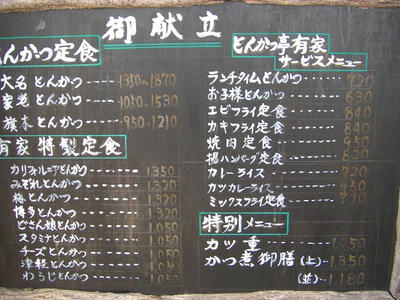 御献立
とんかつ定食
大名 とんかつ 1350〜1870
家老 とんかつ 1050〜1530
旗本 とんかつ 950〜1210
有家 特製定食
カリフォルニアとんかつ 1350
みぞれとんかつ 1.150
梅とんかつ 1.150
博多とんかつ 1.150
どさん娘とんかつ 1.050
スタミナとんかつ 1.050
チーズとんかつ 1.050
津軽とんかつ 1.050
わらじとんかつ 1.050
とんかつ亭有家
サービスメニュー
ランチタイムとんかつ 720
お子様とんかつ 630
エビフライ定食 840
カキフライ定食 840
焼肉定食 950
揚ハンバーグ定食 820
カレーライス 720
カツカレーライス 950
ミックスフライ定食 790
特別メニュー
カツ重 1.050
かつ煮御膳(上) 1.350
(並) 1.180